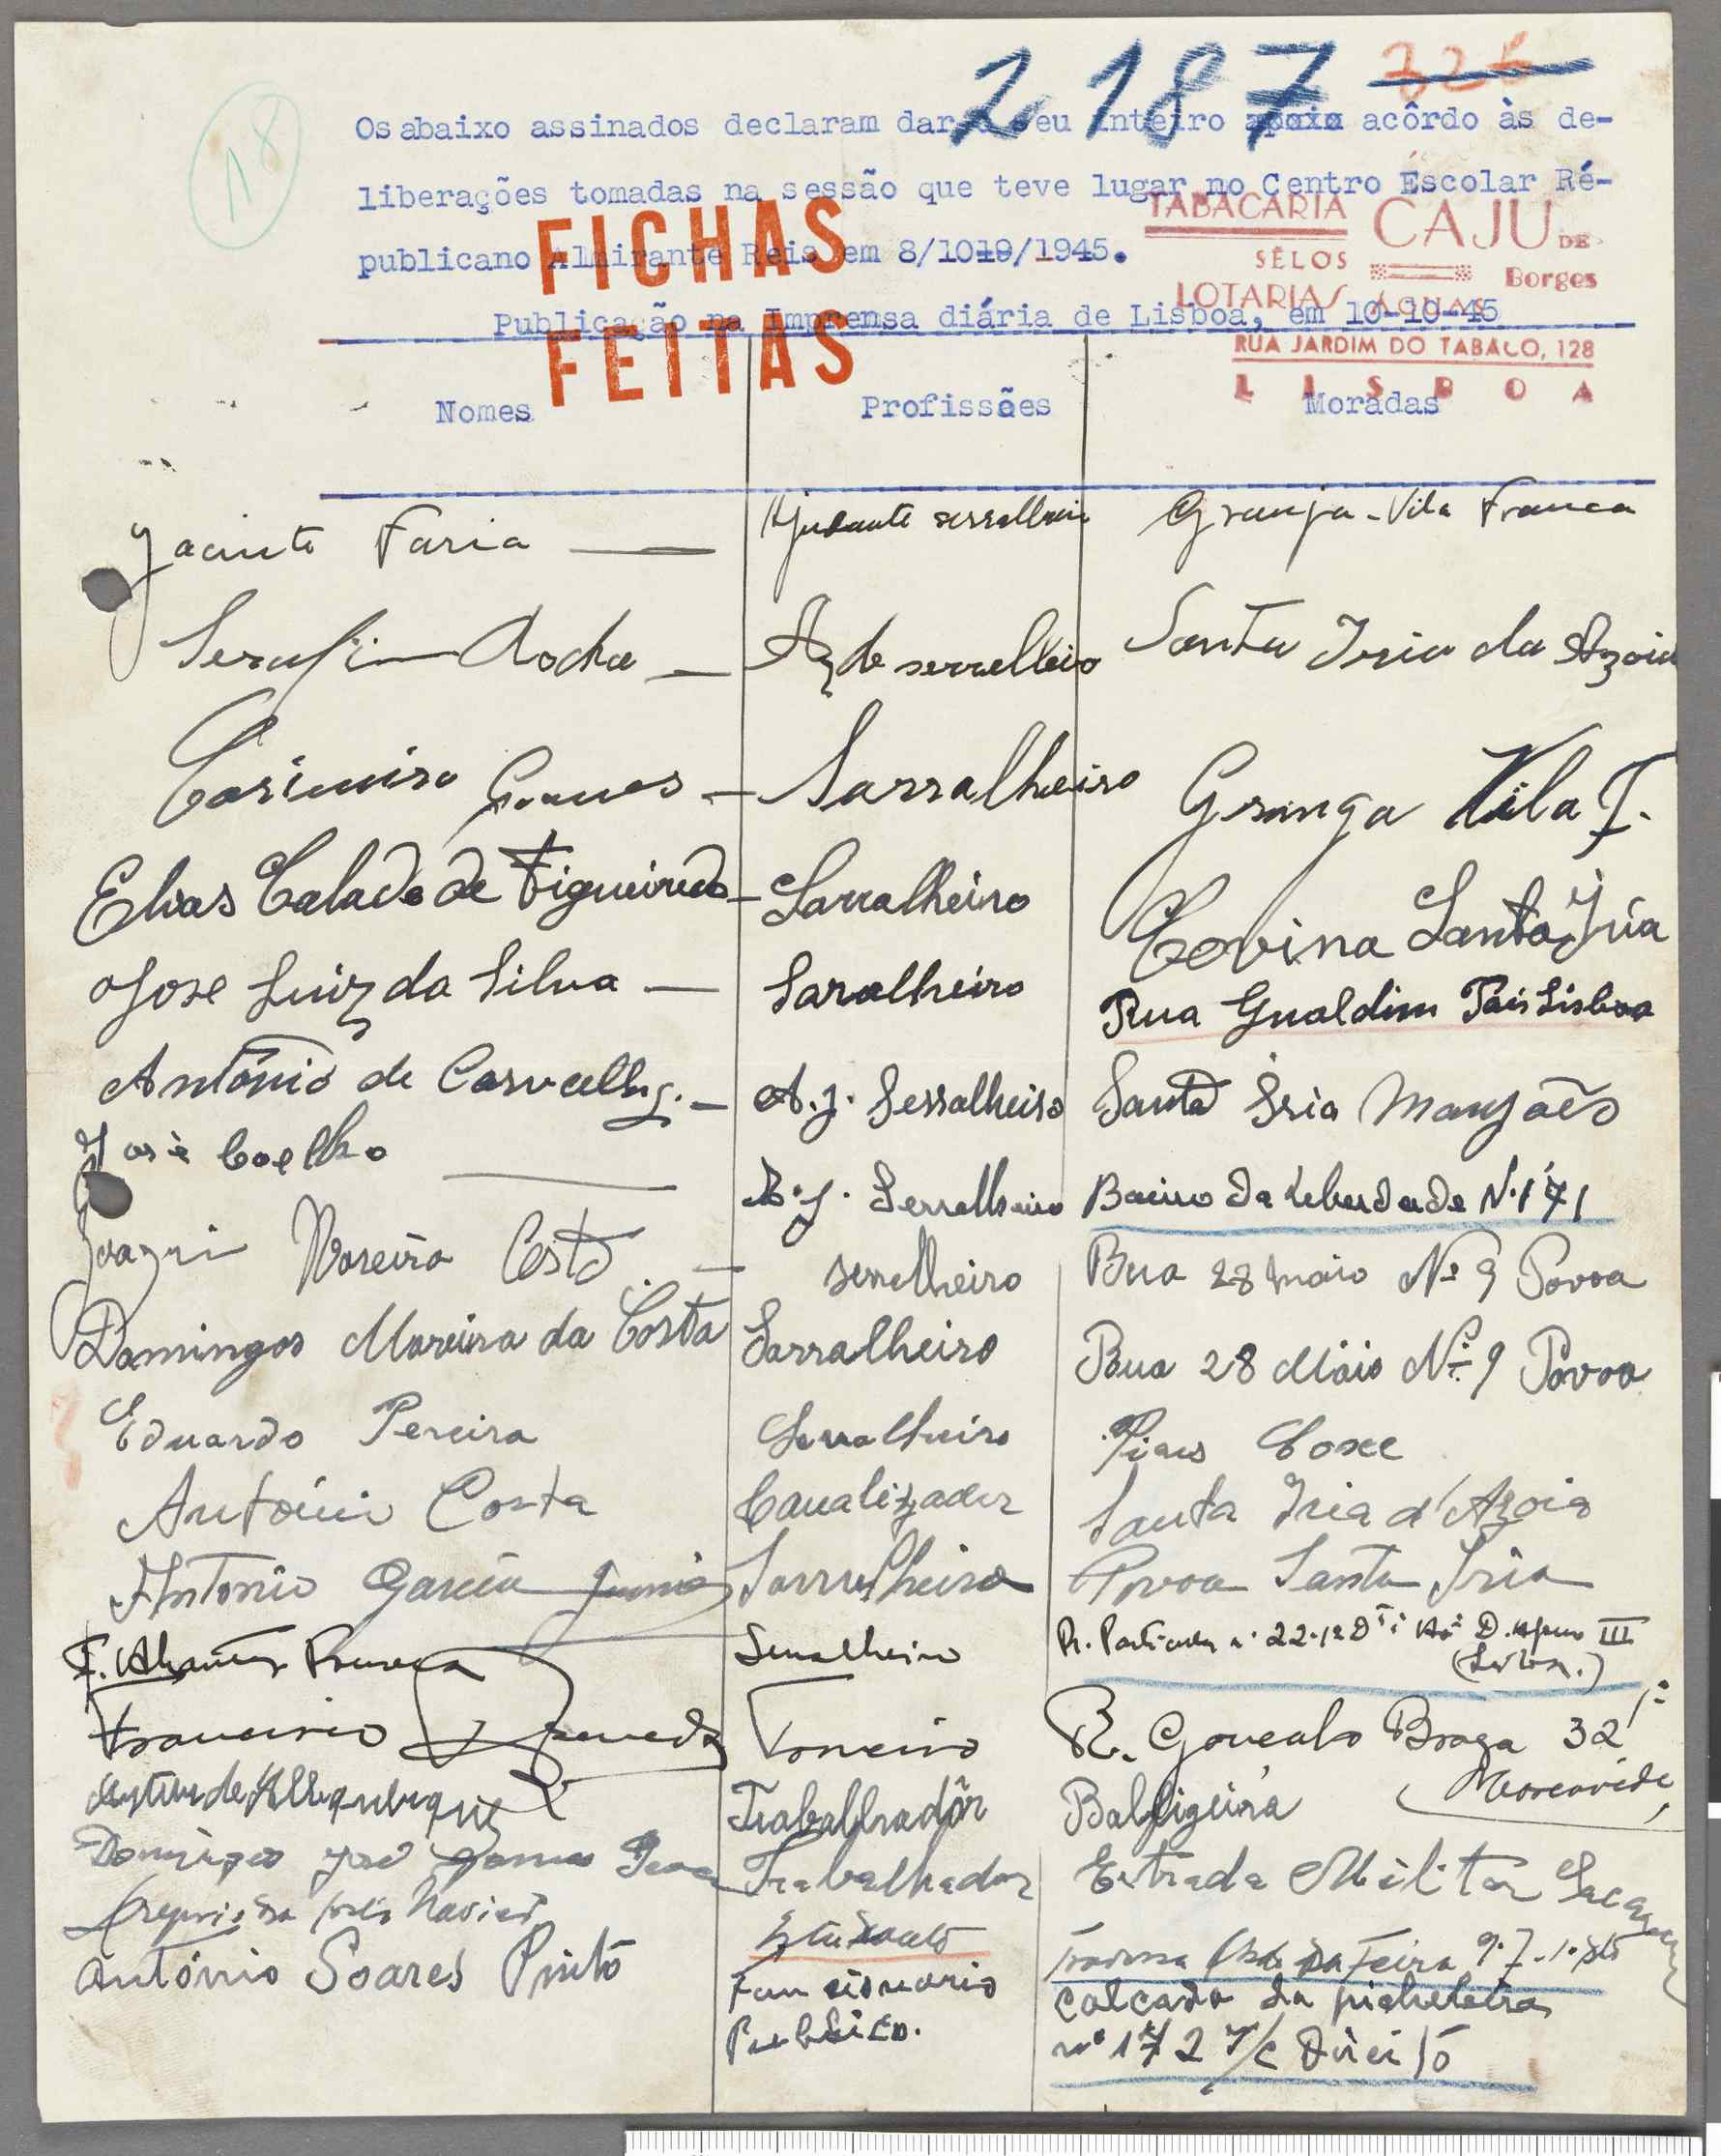 2187 326
18
Os abaixo assinados declaram dar o seu inteiro apoio acôrdo às de-
liberações tomadas na sessão que teve lugar no Centro Escolar Ré-
publicano Almirante Reis em 8/10/1945.
Publicação na Imprensa diária de Lisboa, em 10-10-45
FICHAS
FEITAS
TABACARIA CAJU DE
SÊLOS Borges
LOTARIAS AGUAS
RUA JARDIM DO TABACO, 128
LISBOA
Nomes Profissões Moradas
Jacinto Faria Ajudante serralheiro Granja - Vila Franca
Serafim Rocha Aj de serralheiro Santa Iria da Azoia
Casimiro Gomes Sarralheiro Granga Vila F.
Elias Calado de Figueiredo Sarralheiro Covina Santa Iria
Jose Luiz da Silva Saralheiro Rua Gualdim Pais Lisboa
António de Carvalho. A. j. Serralheiro Santa Iria Manjoão
José Coelho A. j. Serralheiro Bairro da Leberdade N. 171
Joaqui Moreira Costa serralheiro Rua 28 maio Nº 9 Povoa
Domingos Moreira da Costa Sarralheiro Rua 28 Máio Nº 9 Povoa
Eduardo Pereira Serralheiro Pires Coxe
António Costa Canalizador Santa Iria d'Azoia
Antonio Garcia Junior Sarralheiro Povoa Santa Iria
F. Fonseca Serralheiro R. Particular nº 22-1º Dtº III
(Lisboa.)
Francisco Torneiro R. Goncalo Braga 32 1º
Moscavide
Artur de Alburquerque Trabalhadôr Balfigeira
Domingos José Gomes Trabalhador Estrada Militar Sacavem
Xavier Estudante da Feira 9-7-1-
António Soares Pinto Funcionario Calcada da picheleira
Publico. nº 172 r/c Direito